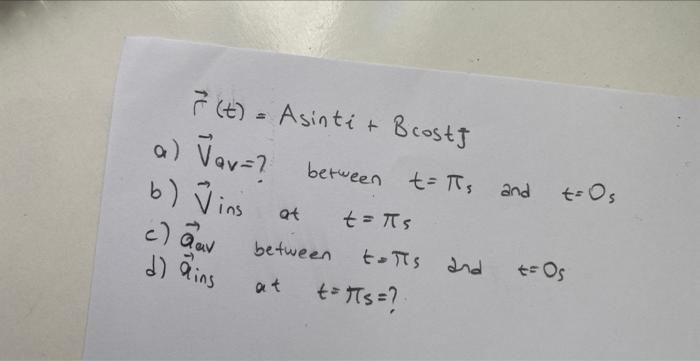 r⃗(t) = Asinti + Bcostj
a) V⃗av=? between t=πs and t=0s
b) V⃗ins at t=πs
c) a⃗av between t=πs and t=0s
d) a⃗ins at t=πs=?